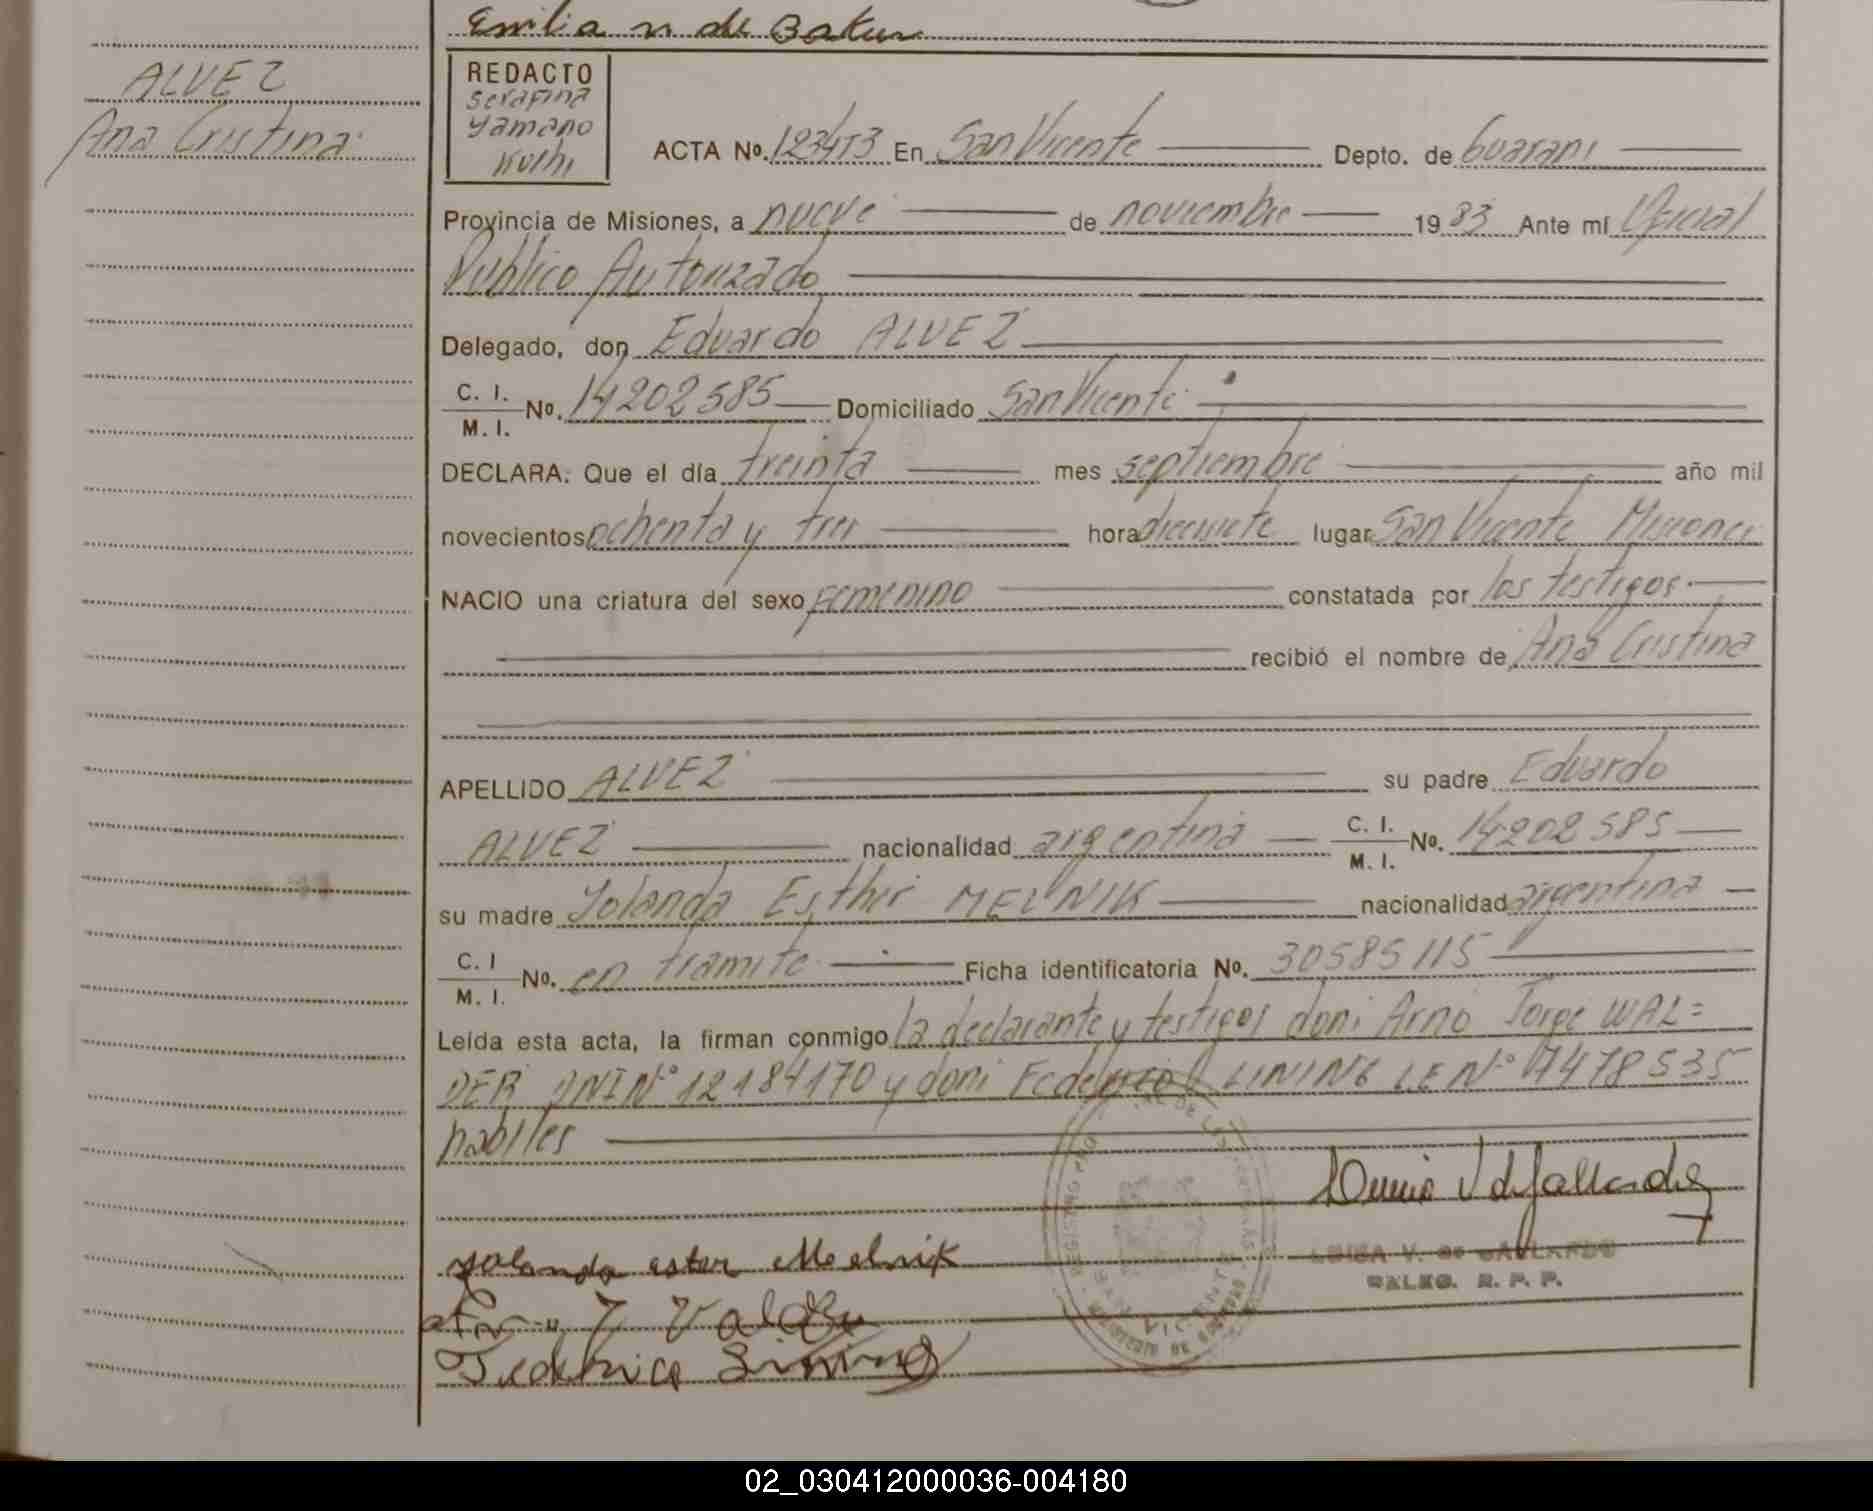 Emilia n de Bakun
ALVEZ
Ana Cristina
REDACTO
Serafina
Yamano
Kuchi
ACTA No. En San Vicente Depto. de Guarani
Provincia de Misiones, a nueve de noviembre 1983 Ante mí Oficial
Publico Autorizado
Delegado, don Eduardo ALVEZ
C. I.
M. I. No. 14202585 Domiciliado San Vicente
DECLARA: Que el día treinta mes septiembre año mil
novecientos ochenta y tres hora diecisiete lugar San Vicente Misiones
NACIO una criatura del sexo femenino constatada por los testigos
recibió el nombre de Ana Cristina
APELLIDO ALVEZ su padre Eduardo
ALVEZ nacionalidad argentina C. I.
M. I. No. 14202585
su madre Yolanda Esther MELNIK nacionalidad argentina
C. I
M. I. No. en tramite Ficha identificatoria No. 30585115
Leída esta acta, la firman conmigo la declarante y testigos doni Arno Jorge WAL=
DER DNI Nº 12184170 y doni Federico LINING LE Nº 7478535
habiles
yolanda ester Melnik
Federico Lining
SAN VICENTE
DALEG. R. P. P.
02_030412000036-004180